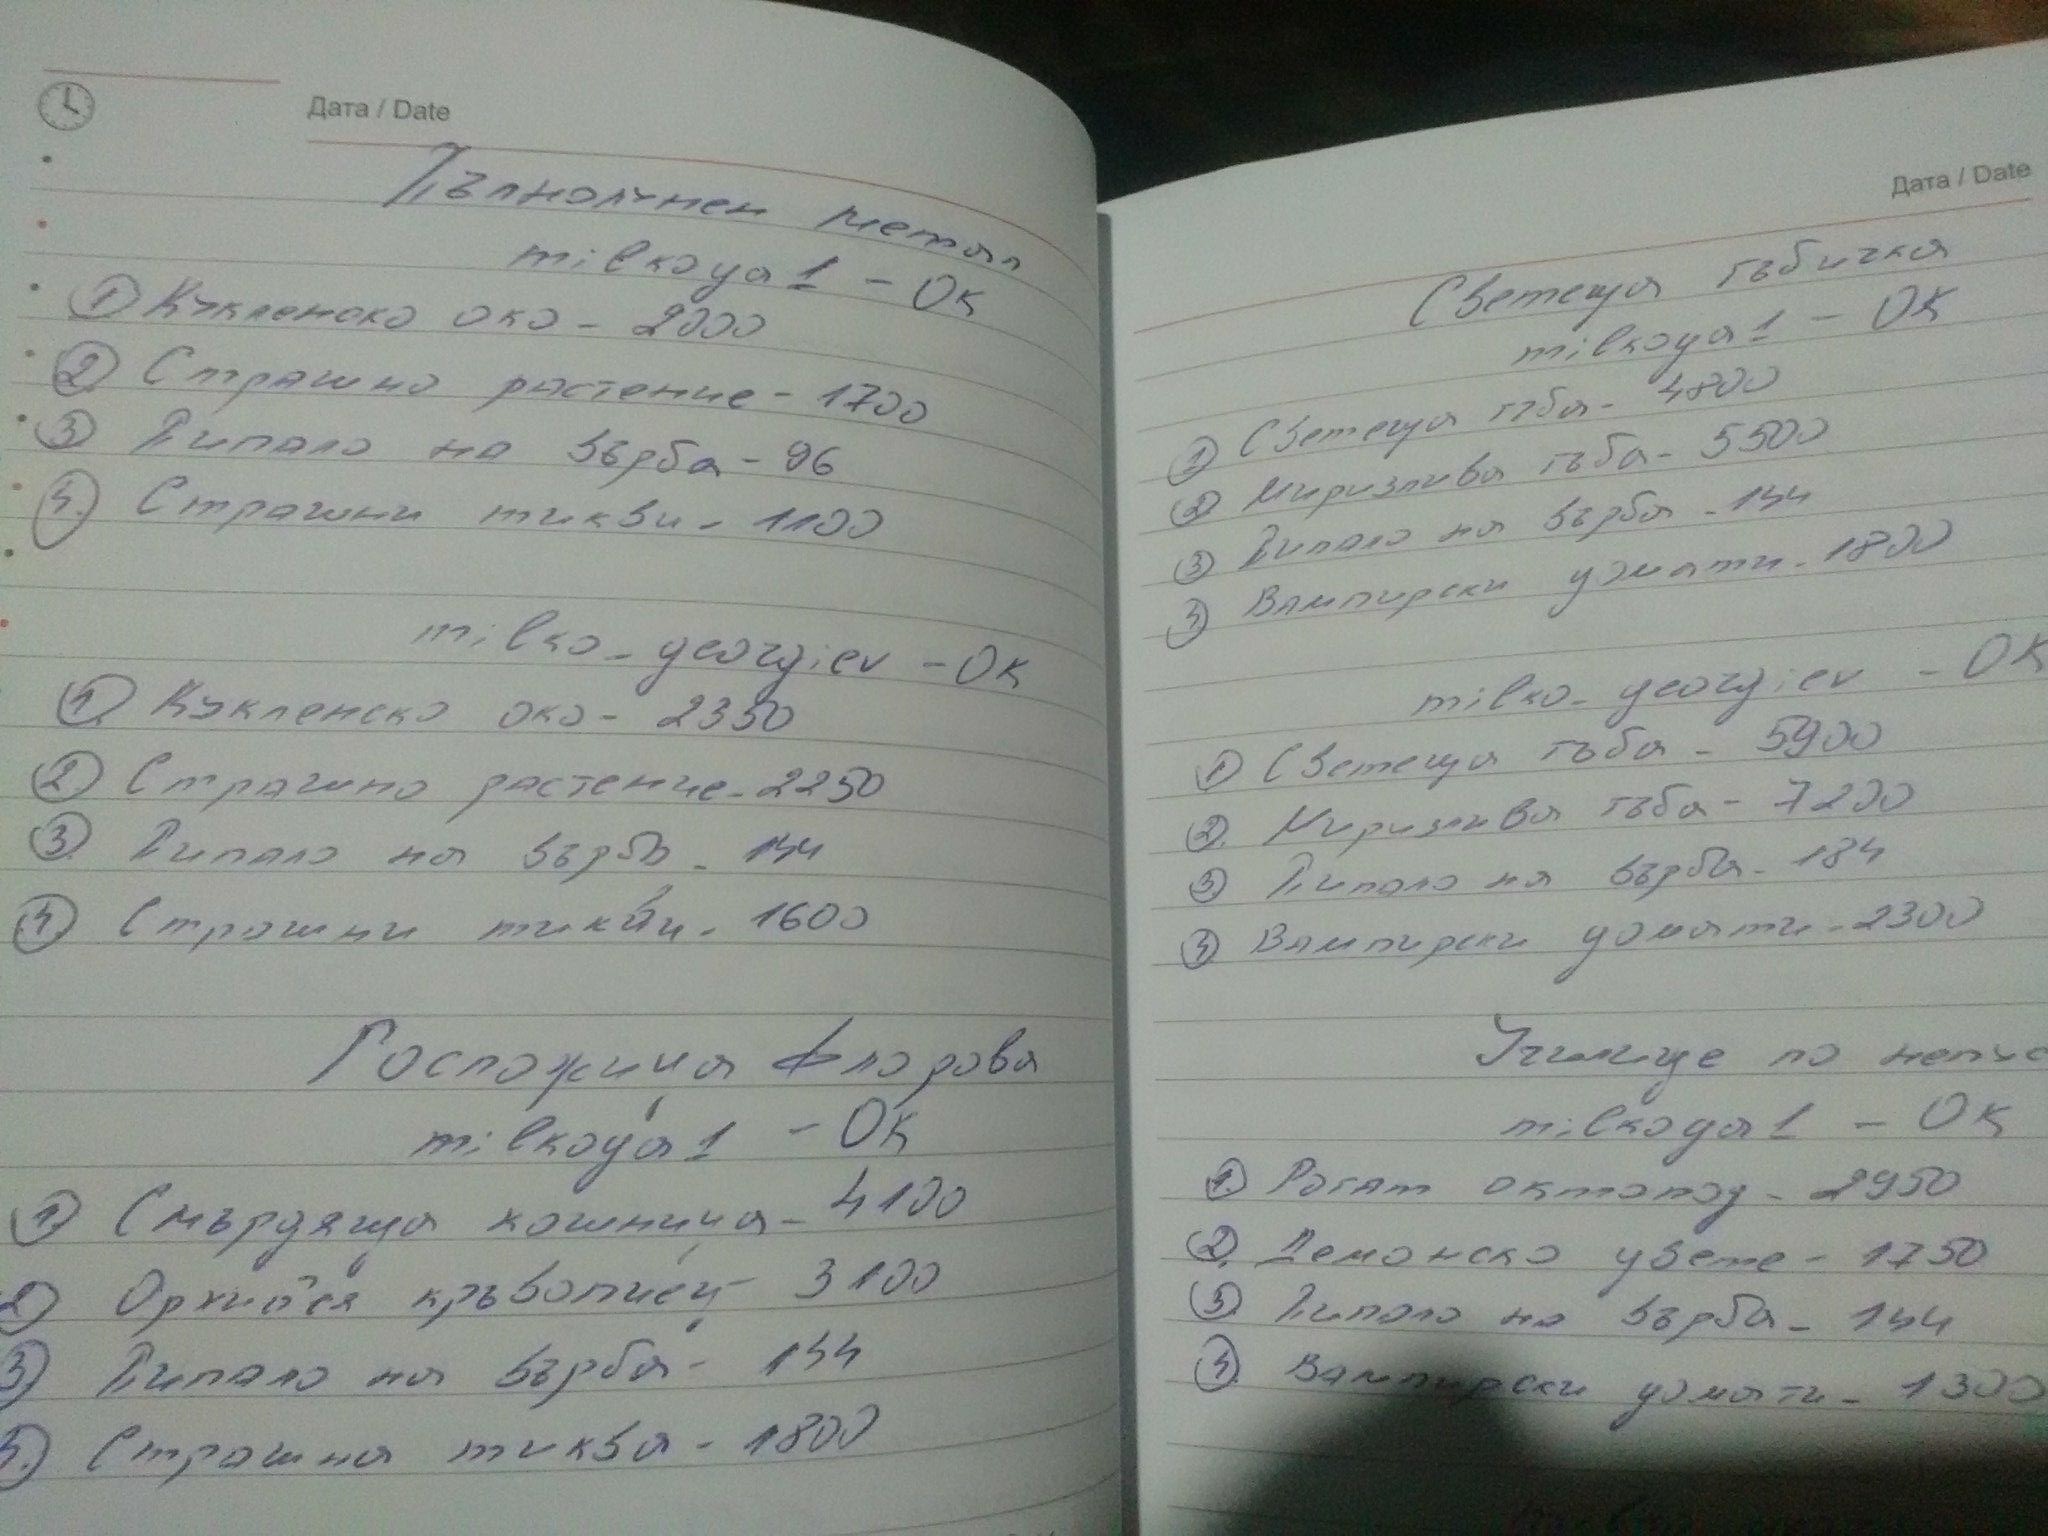 Дата / Date
Пълнолунен метал
milkoya1 - OK
1. Кукленско око - 2000
2. Страшно растение - 1700
3. Пипало на върба - 96
4. Страшни тикви - 1100
milko_georgiev - OK
1. Кукленско око - 2350
2. Страшно растение - 2250
3. Пипало на върба - 144
4. Страшни тикви - 1600
Госпожица Флорова
milkoya1 - OK
1. Смърдяща кошница - 4100
2. Орхидея кръвопиец - 3100
3. Пипало на върба - 144
4. Страшна тиква - 1800
Дата / Date
Светеща гъбичка
milkoya1 - OK
1. Светеща гъба - 4800
2. Миризлива гъба - 5500
3. Пипало на върба - 144
4. Вампирски домати - 1800
milko_georgiev - OK
1. Светеща гъба - 5900
2. Миризлива гъба - 7200
3. Пипало на върба - 184
4. Вампирски домати - 2300
Училище по
milkoya1 - OK
1. Рогат октопод - 2950
2. Демонско цвете - 1750
3. Пипало на върба - 144
4. Вампирски домати - 1300